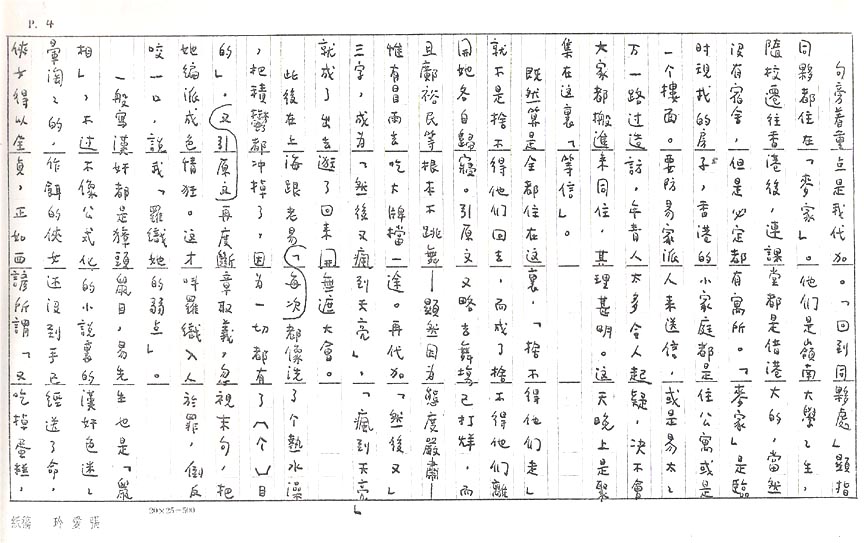 P. 4
句旁着重点是我代加。「回到同夥處」顯指
同夥都住在「麥家」。他們是嶺南大學々生,
隨校遷往香港後,連課堂都是借港大的,當然
沒有宿舍,但是必定都有寓所。「麥家」是臨
时現找的房子,香港的小家庭都是住公寓或是
一个樓面。要防易家派人来送信,或是易太々
万一路过造訪,年青人太多令人起疑,决不會
大家都搬進来同住,其理甚明。这天晚上是聚
集在这裏「等信」。
既然算是全都住在这裏,「捨不得他们走」
就不是捨不得他们回去,而成了捨不得他们離
開她各自歸寢。引原文又略去舞場已打烊,而
且鄺裕民等根本不跳舞——顯然因为態度嚴肅——
惟有冒雨去吃大牌檔一途。再代加「然後又」
三字,成为「然後又瘋到天亮」,「瘋到天亮」
就成了出去逛了回来開無遮大會。
此後在上海跟老易「每次都像洗了个熱水澡
,把積鬱都冲掉了,因为一切都有了个目
的」。又引原文再度斷章取義,忽視末句,把
她编派成色情狂。这才叫羅織入人於罪,倒反
咬一口,說我「羅織她的弱点」。
一般寫漢奸都是獐頭鼠目,易先生也是「鼠
相」,不过不像公式化的小說裏的漢奸色迷々
暈淘々的,作餌的俠女还沒到手已經送了命,
俠女得以全貞,正如西諺所謂「又吃掉蛋糕,
20×25=500
紙稿 玲愛張